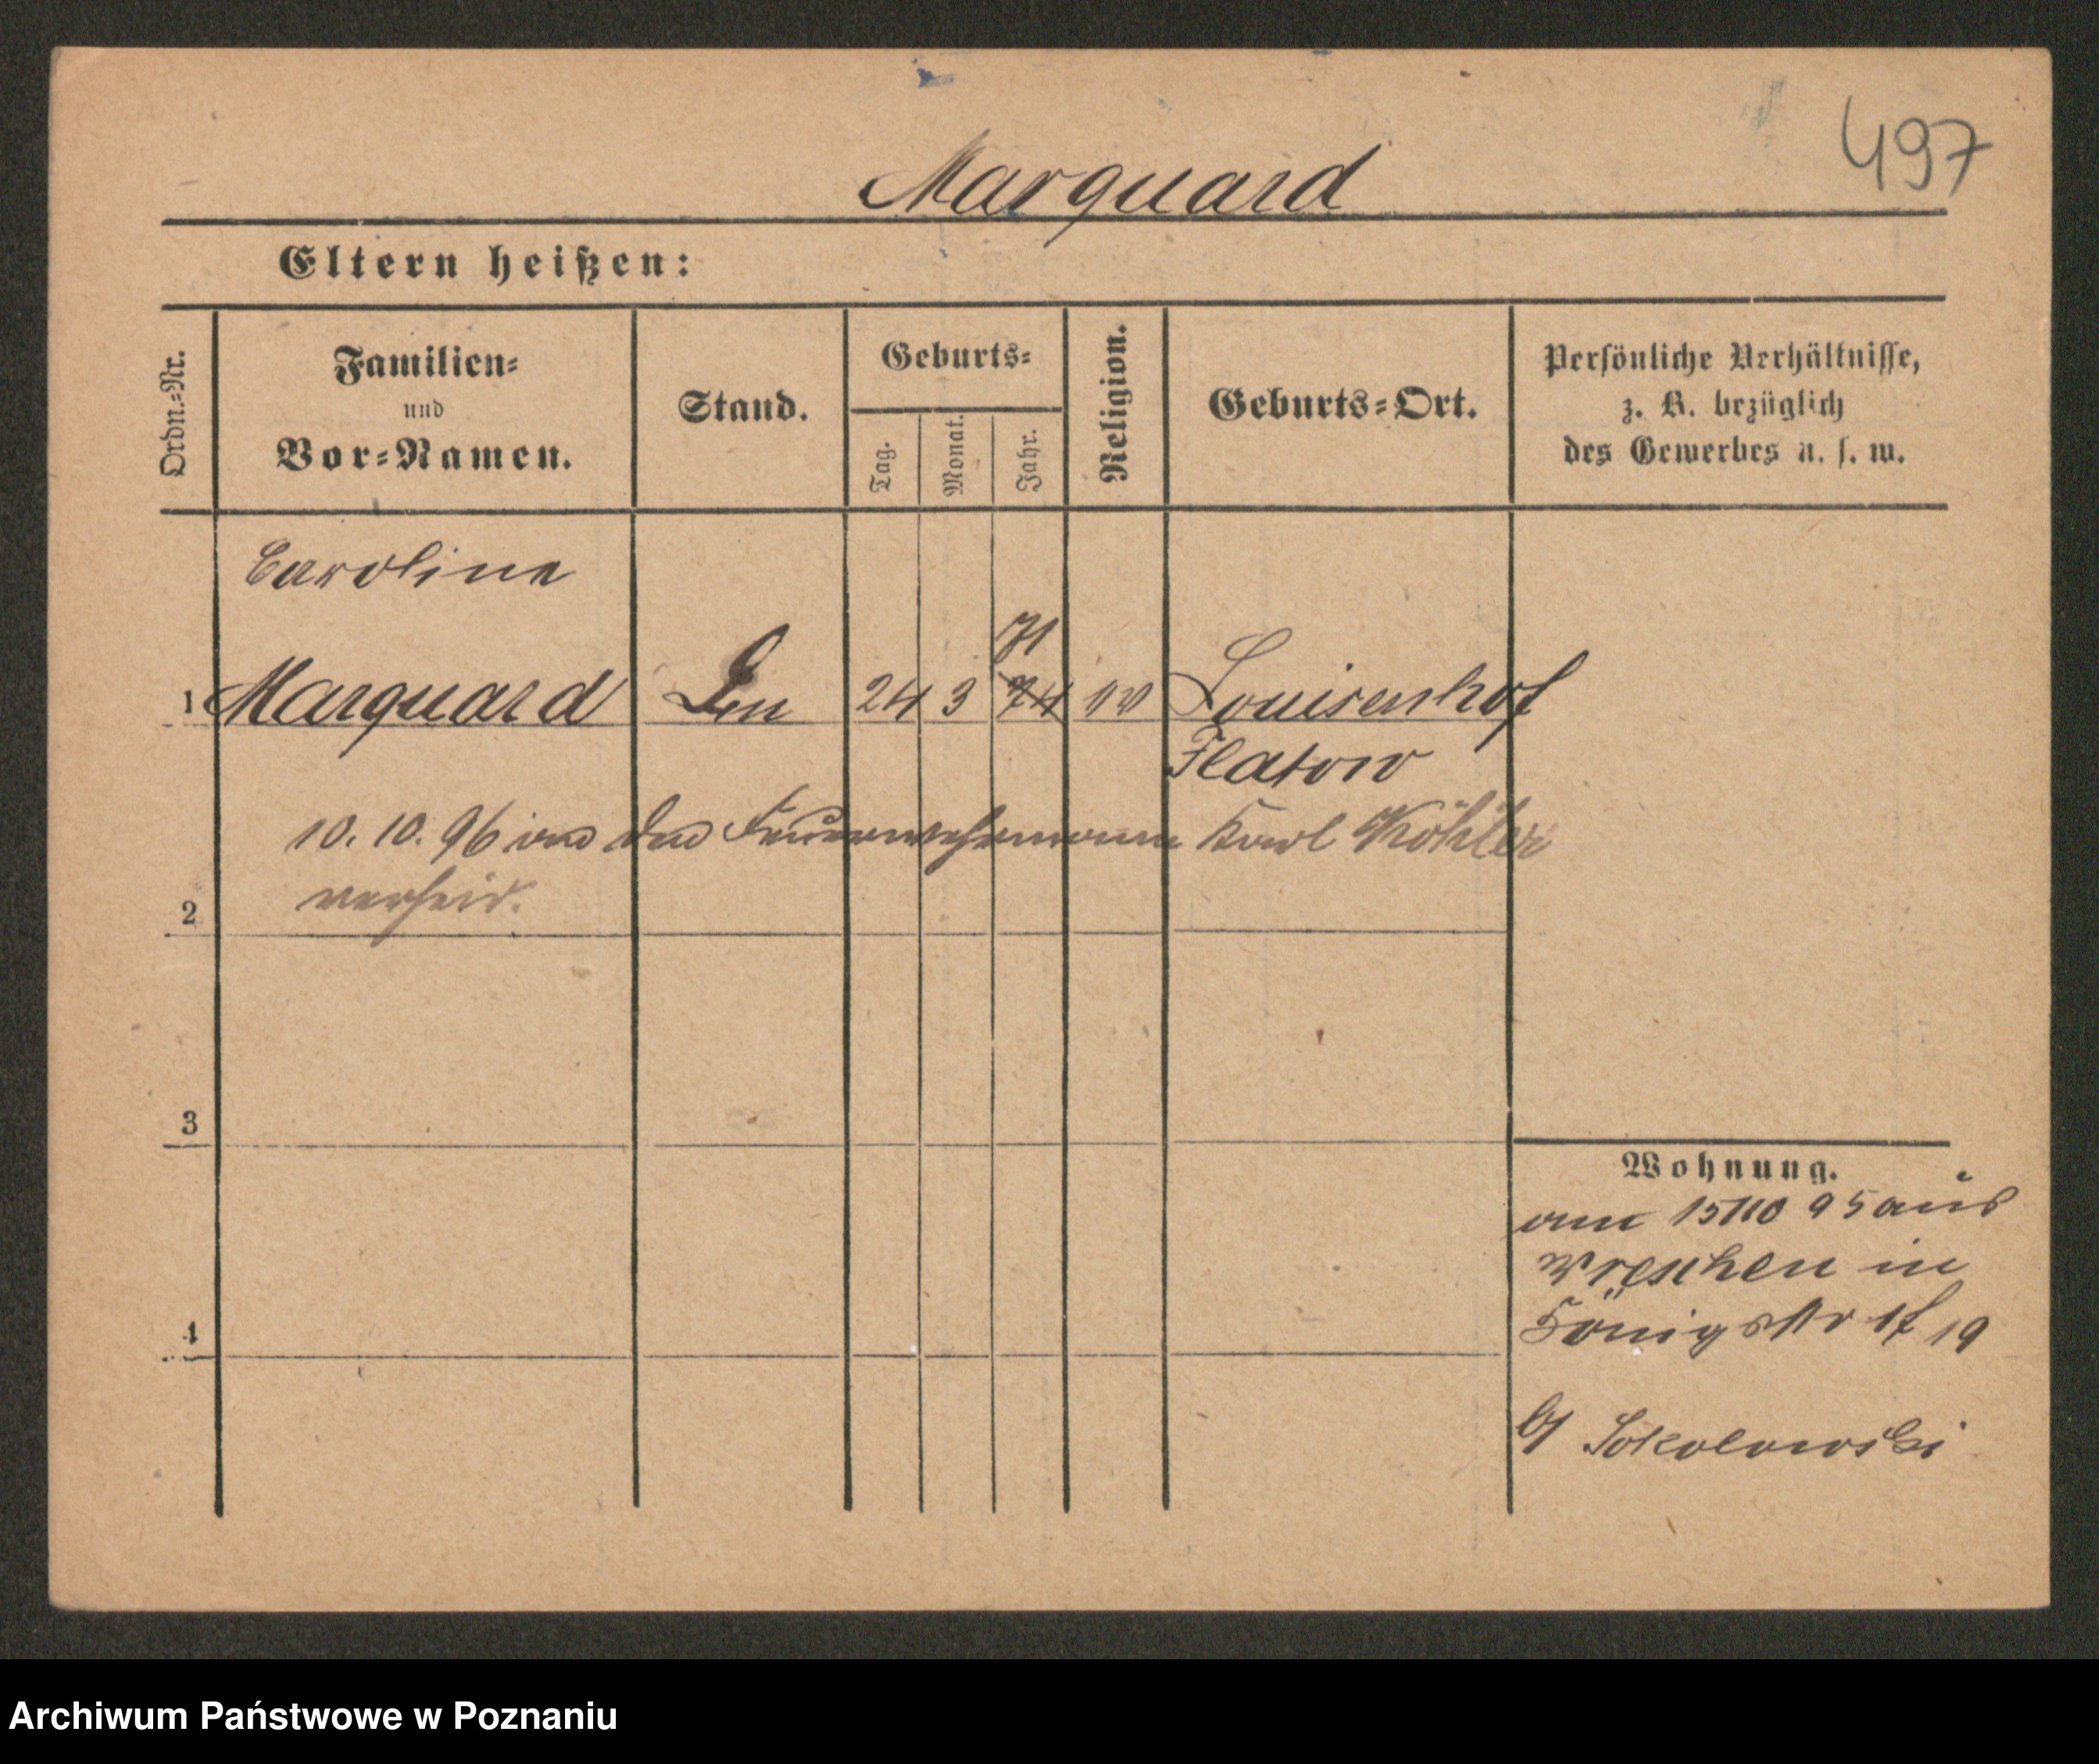 497
Marquard
Eltern heißen:
Ordn.-Nr.
Familien-
und
Vor-Namen.
Stand.
Geburts-
Tag.
Monat.
Jahr.
Religion.
Geburts-Ort.
Persönliche Verhältnisse,
z. B. bezüglich
des Gewerbes u. s. w.
Caroline
1 Marquard 24 3 74 71 Louisenhof
Flatow
10. 10. 96 Feuerwehrmann Karl Köhler
verheir.
2
3
4
Wohnung.
am 15/10 95 aus
Wreschen in
Königstr 19
b/ Sokolowski
Archiwum Państwowe w Poznaniu